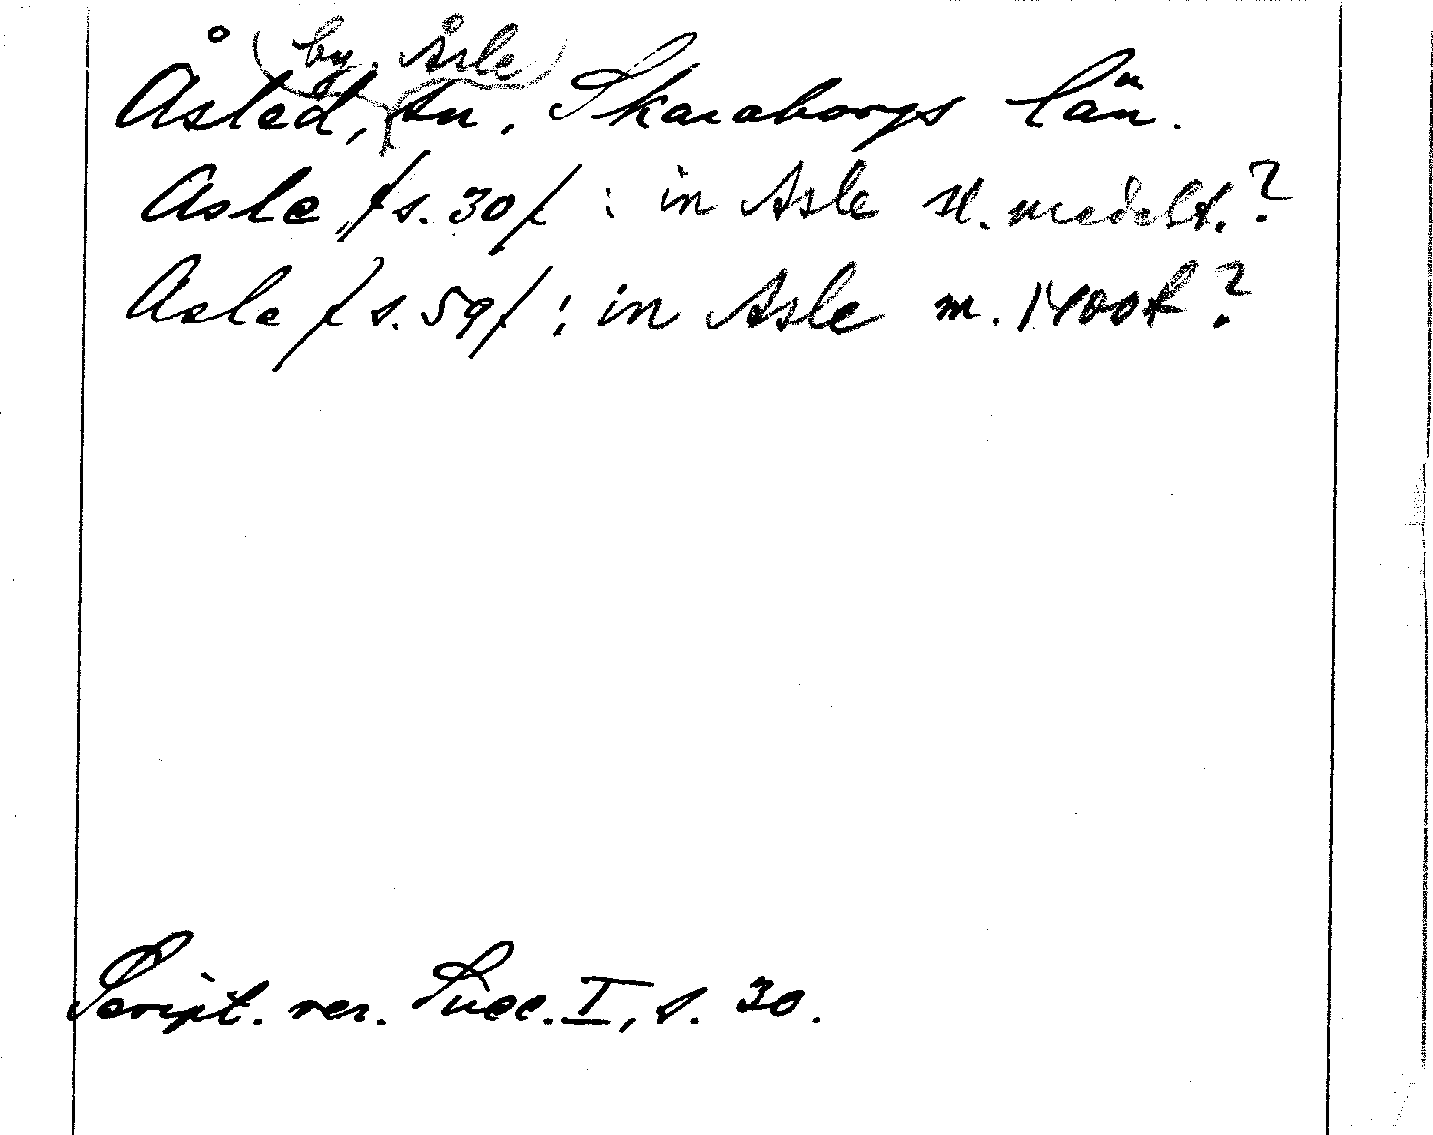 (by. Åsle)
Åsled, sn, Skaraborgs län.
Asle /s. 30/ : in Asle sl. medelt.?
Asle /s. 59/ : in Asle m. 1400t?
Script. rer. Suec. I, s. 30.